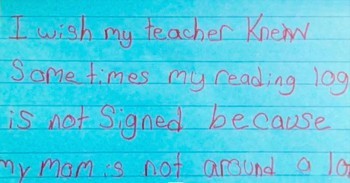 I wish my teacher Knew
Sometimes my reading log
is not Signed because
my mom is not around a lot